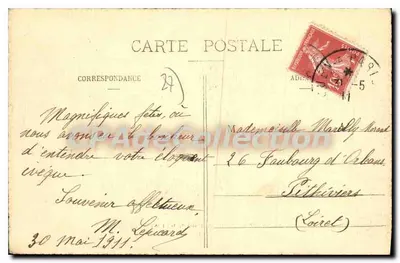 CARTE POSTALE
CORRESPONDANCE
27
Magnifiques fêtes, où
nous avons eu l'honneur
d'entendre votre éloquent
évêque.
Souvenir affectueux.
M.
30 mai 1911.
Mademoiselle
26 Faubourg d'Orléans
Pithiviers
(Loiret)